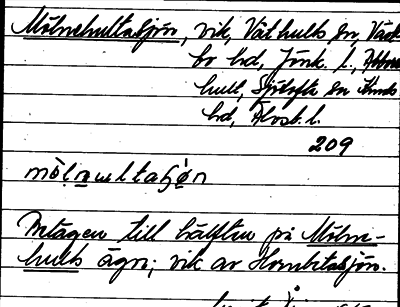 Mölnehultasjön, vik, Våthults sn, Väst-
bo hd, Jönk. l.,
hult, Sjötofta sn Kinds
hd, Älvsb. l.
209
Intagen till hälften på Mölne-
hults ägor; vik av Hornbetasjön.